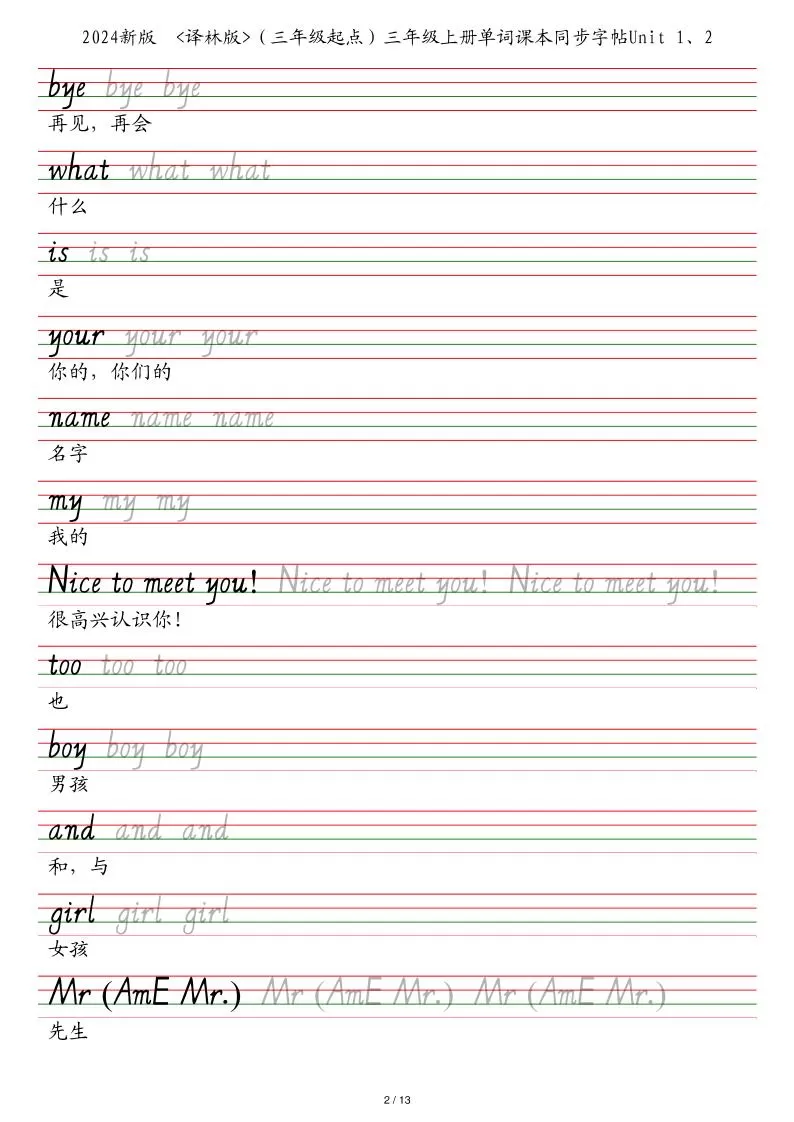 2024新版 <译林版>（三年级起点）三年级上册单词课本同步字帖Unit 1、2
bye bye bye
再见，再会
what what what
什么
is is is
是
your your your
你的，你们的
name name name
名字
my my my
我的
Nice to meet you! Nice to meet you! Nice to meet you!
很高兴认识你！
too too too
也
boy boy boy
男孩
and and and
和，与
girl girl girl
女孩
Mr (AmE Mr.) Mr (AmE Mr.) Mr (AmE Mr.)
先生
2 / 13